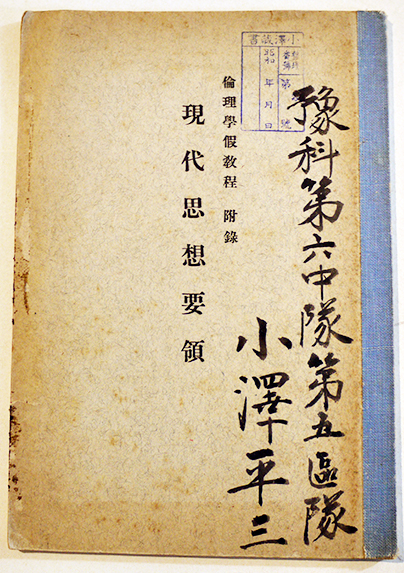 豫科第六中隊第五區隊
小澤平三
小澤藏書
第 號
昭和 年 月 日
倫理學假敎程 附錄
現代思想要領